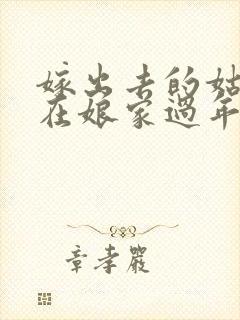 嫁出去的姑
在娘家過年
章孝嚴